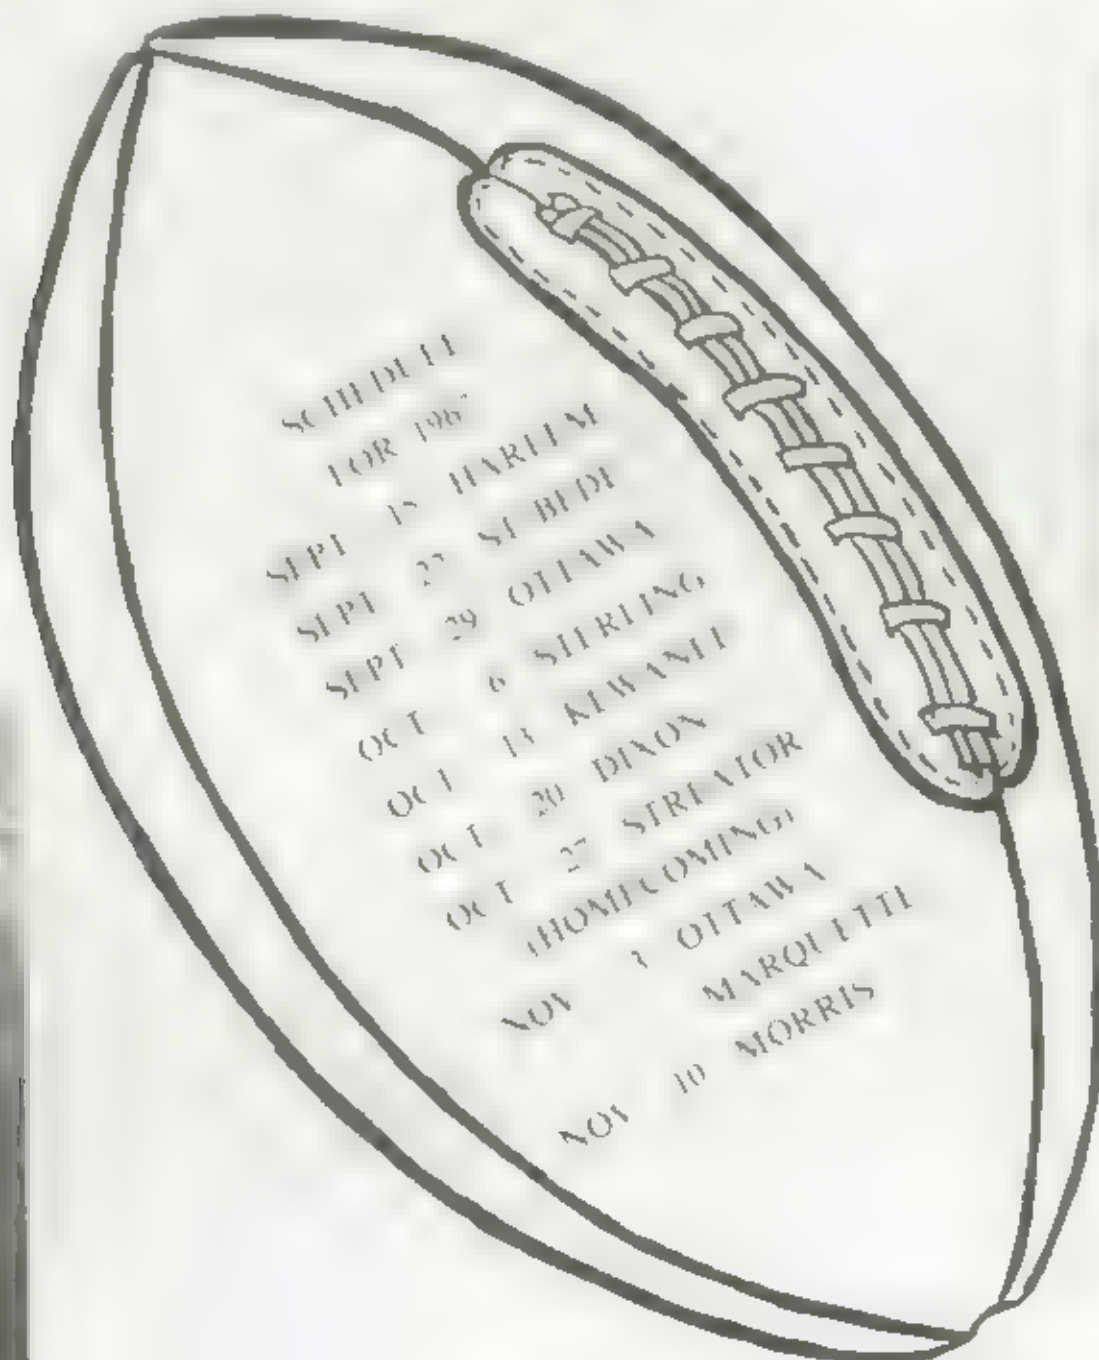 SCHEDULE
FOR 1967
SEPT 15 HARLEM
SEPT 22 ST BEDE
SEPT 29 OTTAWA
OCT 6 STERLING
OCT 13 KEWANEE
OCT 20 DIXON
OCT 27 STREATOR
(HOMECOMING)
NOV 3 OTTAWA
MARQUETTE
NOV 10 MORRIS